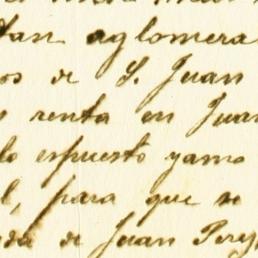 tan aglomera
os de S. Juan
renta en Juan
lo espuesto yamo
l, para que se
da de Juan Perey